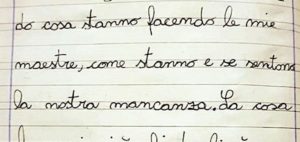 do cosa stanno facendo le mie
maestre, come stanno e se sentono
la nostra mancanza. La cosa